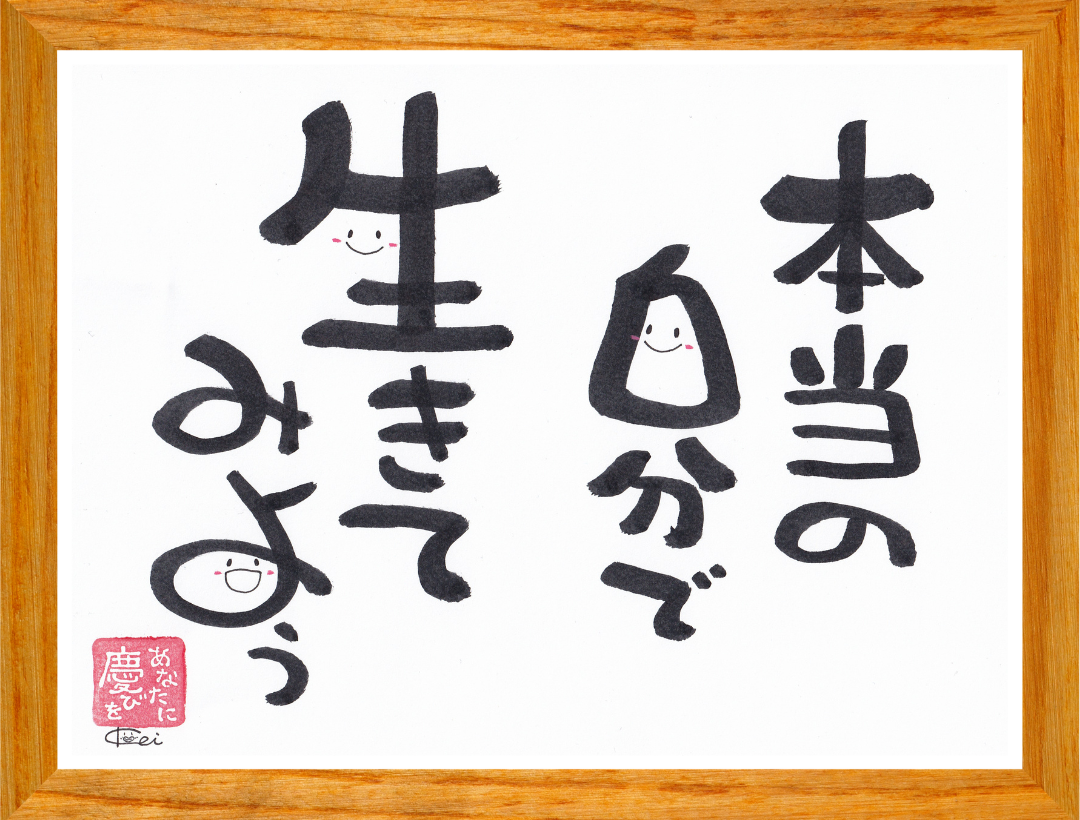 本当の
自分で
生きて
みよう
あなたに
慶びを
Kei